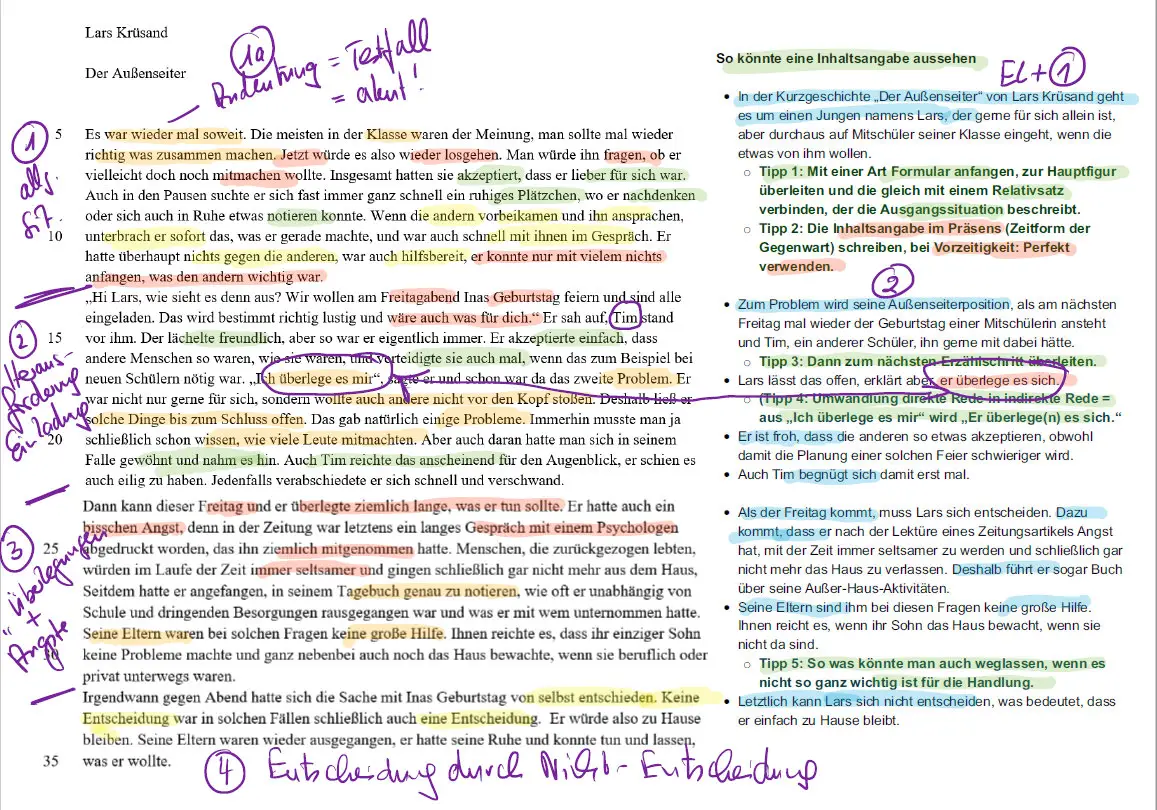 Lars Krüsand
Der Außenseiter
1a
Andeutung = Testfall
= akut!
1
allg.
Sit.
5 Es war wieder mal soweit. Die meisten in der Klasse waren der Meinung, man sollte mal wieder
richtig was zusammen machen. Jetzt würde es also wieder losgehen. Man würde ihn fragen, ob er
vielleicht doch noch mitmachen wollte. Insgesamt hatten sie akzeptiert, dass er lieber für sich war.
Auch in den Pausen suchte er sich fast immer ganz schnell ein ruhiges Plätzchen, wo er nachdenken
oder sich auch in Ruhe etwas notieren konnte. Wenn die andern vorbeikamen und ihn ansprachen,
10 unterbrach er sofort das, was er gerade machte, und war auch schnell mit ihnen im Gespräch. Er
hatte überhaupt nichts gegen die anderen, war auch hilfsbereit, er konnte nur mit vielem nichts
anfangen, was den andern wichtig war.
2
Heraus-
forderung
Einladung
„Hi Lars, wie sieht es denn aus? Wir wollen am Freitagabend Inas Geburtstag feiern und sind alle
eingeladen. Das wird bestimmt richtig lustig und wäre auch was für dich.“ Er sah auf, Tim stand
15 vor ihm. Der lächelte freundlich, aber so war er eigentlich immer. Er akzeptierte einfach, dass
andere Menschen so waren, wie sie waren, und verteidigte sie auch mal, wenn das zum Beispiel bei
neuen Schülern nötig war. „Ich überlege es mir“, sagte er und schon war da das zweite Problem. Er
war nicht nur gerne für sich, sondern wollte auch andere nicht vor den Kopf stoßen. Deshalb ließ er
solche Dinge bis zum Schluss offen. Das gab natürlich einige Probleme. Immerhin musste man ja
20 schließlich schon wissen, wie viele Leute mitmachten. Aber auch daran hatte man sich in seinem
Falle gewöhnt und nahm es hin. Auch Tim reichte das anscheinend für den Augenblick, er schien es
auch eilig zu haben. Jedenfalls verabschiedete er sich schnell und verschwand.
3
Überlegungen
+
Ängste
Dann kann dieser Freitag und er überlegte ziemlich lange, was er tun sollte. Er hatte auch ein
bisschen Angst, denn in der Zeitung war letztens ein langes Gespräch mit einem Psychologen
25 abgedruckt worden, das ihn ziemlich mitgenommen hatte. Menschen, die zurückgezogen lebten,
würden im Laufe der Zeit immer seltsamer und gingen schließlich gar nicht mehr aus dem Haus,
Seitdem hatte er angefangen, in seinem Tagebuch genau zu notieren, wie oft er unabhängig von
Schule und dringenden Besorgungen rausgegangen war und was er mit wem unternommen hatte.
Seine Eltern waren bei solchen Fragen keine große Hilfe. Ihnen reichte es, dass ihr einziger Sohn
30 keine Probleme machte und ganz nebenbei auch noch das Haus bewachte, wenn sie beruflich oder
privat unterwegs waren.
Irgendwann gegen Abend hatte sich die Sache mit Inas Geburtstag von selbst entschieden. Keine
Entscheidung war in solchen Fällen schließlich auch eine Entscheidung. Er würde also zu Hause
bleiben. Seine Eltern waren wieder ausgegangen, er hatte seine Ruhe und konnte tun und lassen,
35 was er wollte.
4 Entscheidung durch Nicht-Entscheidung
So könnte eine Inhaltsangabe aussehen
EL + 1
• In der Kurzgeschichte „Der Außenseiter“ von Lars Krüsand geht
es um einen Jungen namens Lars, der gerne für sich allein ist,
aber durchaus auf Mitschüler seiner Klasse eingeht, wenn die
etwas von ihm wollen.
○ Tipp 1: Mit einer Art Formular anfangen, zur Hauptfigur
überleiten und die gleich mit einem Relativsatz
verbinden, der die Ausgangssituation beschreibt.
○ Tipp 2: Die Inhaltsangabe im Präsens (Zeitform der
Gegenwart) schreiben, bei Vorzeitigkeit: Perfekt
verwenden.
2
• Zum Problem wird seine Außenseiterposition, als am nächsten
Freitag mal wieder der Geburtstag einer Mitschülerin ansteht
und Tim, ein anderer Schüler, ihn gerne mit dabei hätte.
○ Tipp 3: Dann zum nächsten Erzählschritt überleiten.
• Lars lässt das offen, erklärt aber, er überlege es sich.
○ (Tipp 4: Umwandlung direkte Rede in indirekte Rede =
aus „Ich überlege es mir“ wird „Er überlege(n) es sich.“
• Er ist froh, dass die anderen so etwas akzeptieren, obwohl
damit die Planung einer solchen Feier schwieriger wird.
• Auch Tim begnügt sich damit erst mal.
• Als der Freitag kommt, muss Lars sich entscheiden. Dazu
kommt, dass er nach der Lektüre eines Zeitungsartikels Angst
hat, mit der Zeit immer seltsamer zu werden und schließlich gar
nicht mehr das Haus zu verlassen. Deshalb führt er sogar Buch
über seine Außer-Haus-Aktivitäten.
• Seine Eltern sind ihm bei diesen Fragen keine große Hilfe.
Ihnen reicht es, wenn ihr Sohn das Haus bewacht, wenn sie
nicht da sind.
○ Tipp 5: So was könnte man auch weglassen, wenn es
nicht so ganz wichtig ist für die Handlung.
• Letztlich kann Lars sich nicht entscheiden, was bedeutet, dass
er einfach zu Hause bleibt.